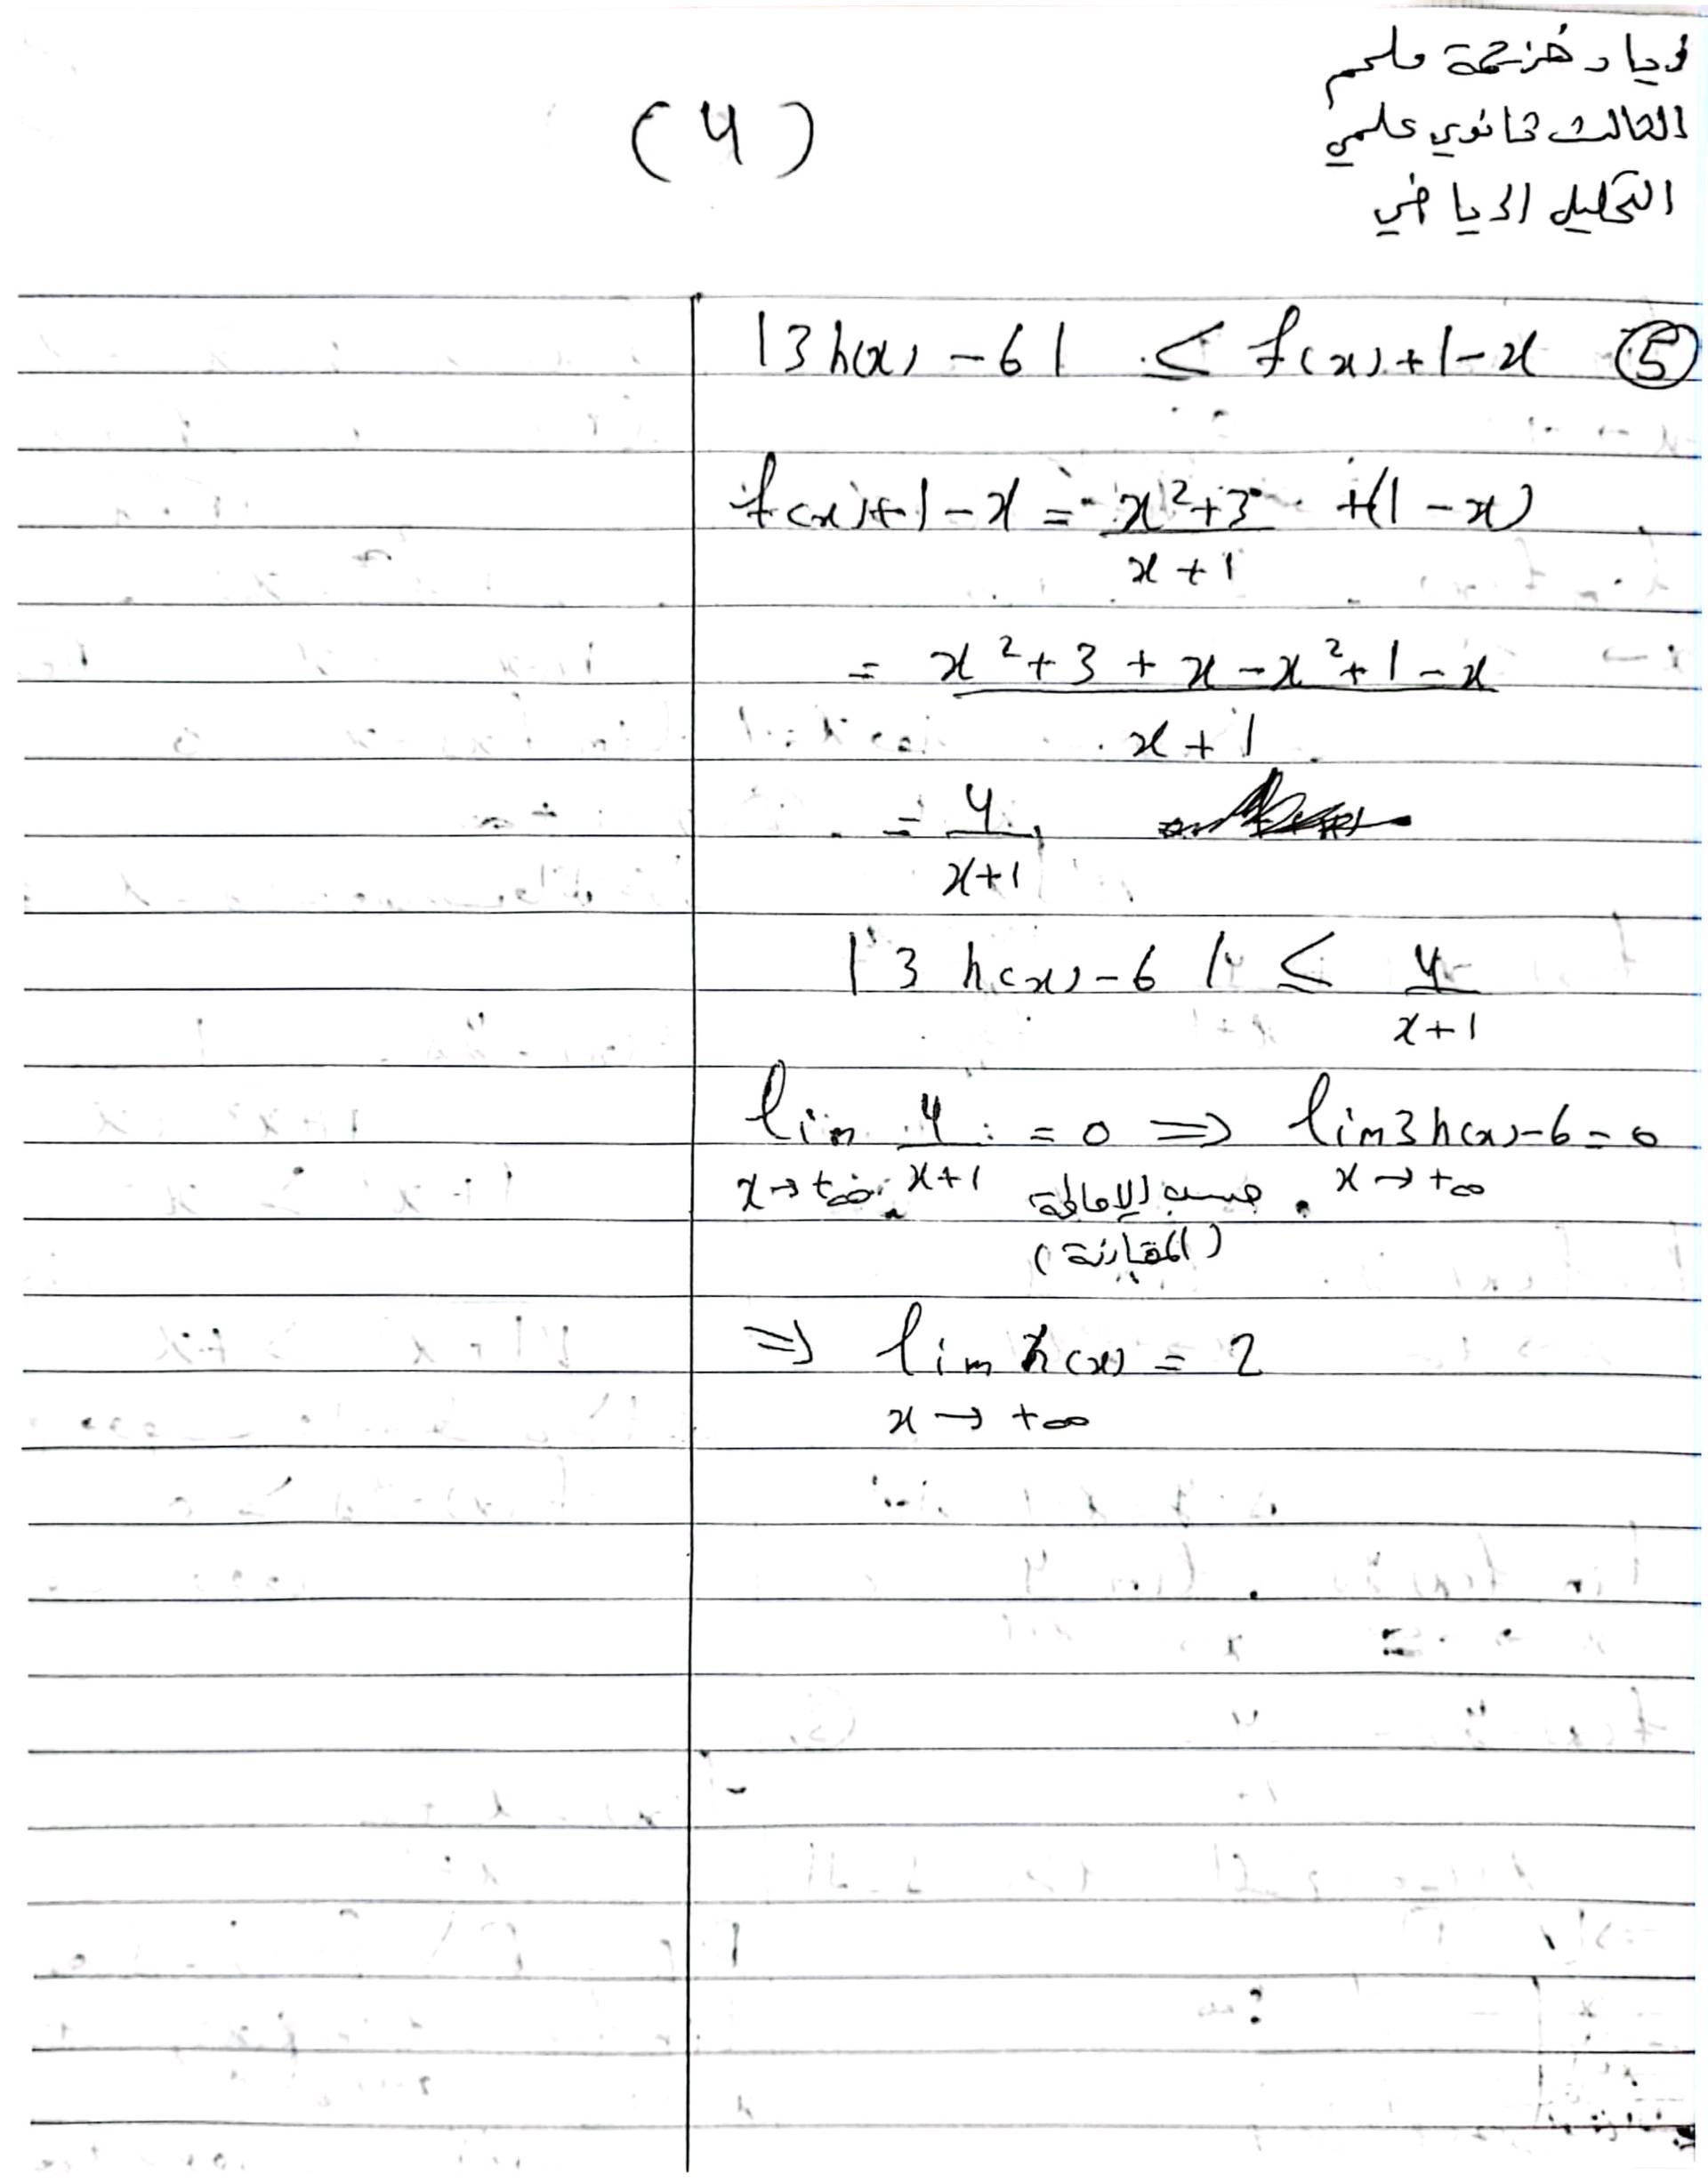 (4)
الثالث ثانوي علمي
التحليل الرياضي
|3h(x) - 6| ≤ f(x) + 1 - x ⑤
f(x) + 1 - x = x²+3 / x+1 + (1 - x)
= x² + 3 + x - x² + 1 - x / x+1
= 4 / x+1
|3 h(x) - 6| ≤ 4 / x+1
lim 4 / x+1 = 0 ⇒ lim 3h(x) - 6 = 0
x → +∞ حسب الإحاطة x → +∞
(المقارنة)
⇒ lim h(x) = 2
x → +∞